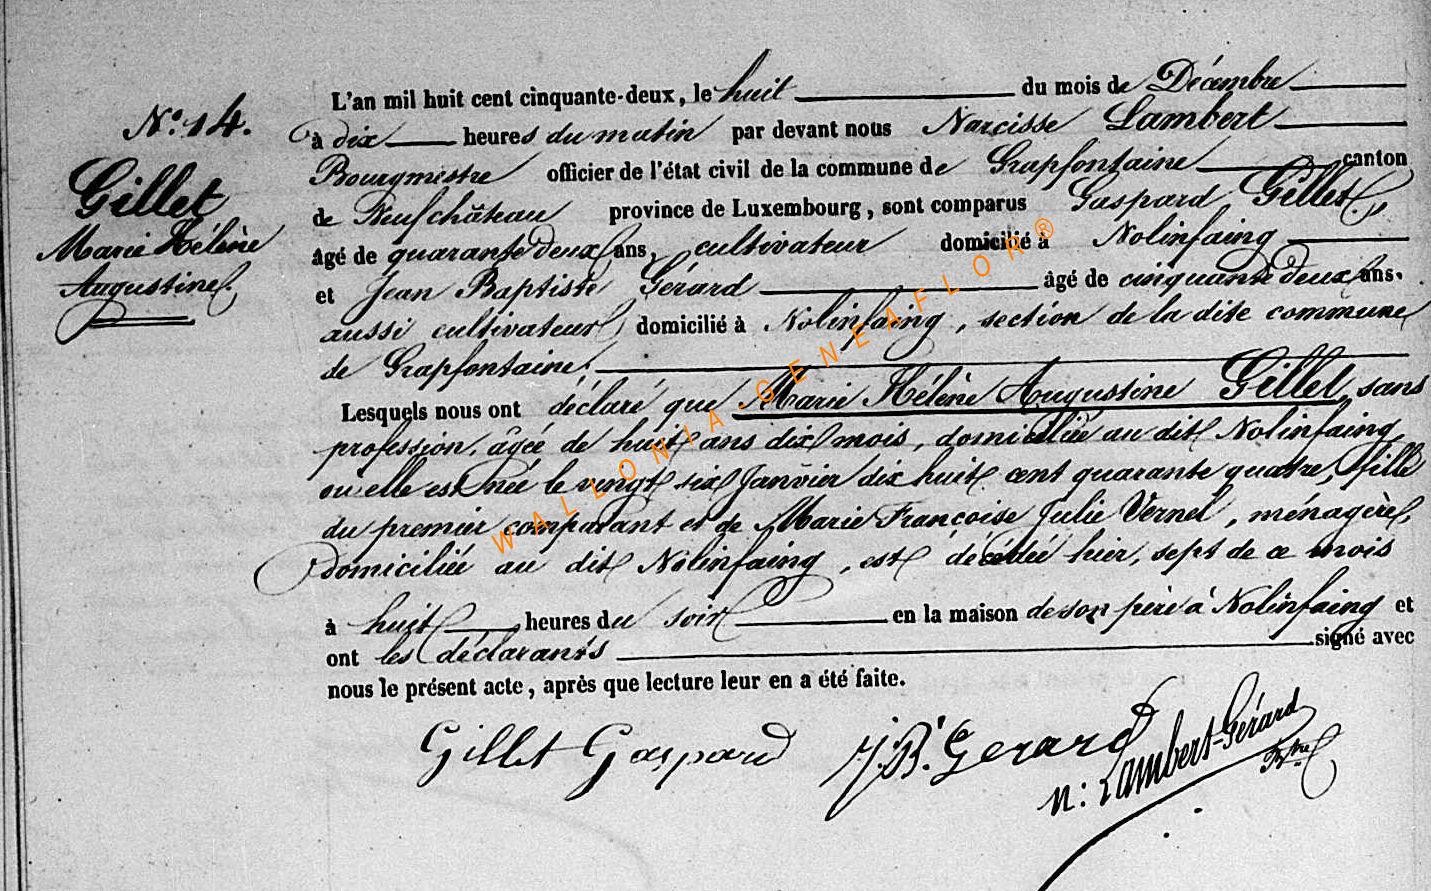 N.º 14.
Gillet
Marie Hélène
Augustine.
L'an mil huit cent cinquante-deux, le huit du mois de Décembre
à dix heures du matin par devant nous Narcisse Lambert
Bourgmestre officier de l'état civil de la commune de Grapfontaine canton
de Neufchâteau province de Luxembourg, sont comparus Gaspard Gillet,
âgé de quarante deux ans, cultivateur domicilié à Nolinfaing
et Jean Baptiste Gérard âgé de cinquante deux ans.
aussi cultivateur domicilié à Nolinfaing, section de la dite commune
de Grapfontaine.
Lesquels nous ont déclaré que Marie Hélène Augustine Gillet, sans
profession, âgée de huit ans dix mois, domiciliée au dit Nolinfaing
ou elle est née le vingt six Janvier dix huit cent quarante quatre, fille
du premier comparant et de Marie Françoise Julie Vernel, ménagère,
domiciliée au dit Nolinfaing, est décédée hier, sept de ce mois
à huit heures du soir en la maison de son père à Nolinfaing et
ont les déclarants signé avec
nous le présent acte, après que lecture leur en a été faite.
Gillet Gaspard J.B. Gerard n: Lambert-Gérard
WALLONIA-GENEAFLOR®